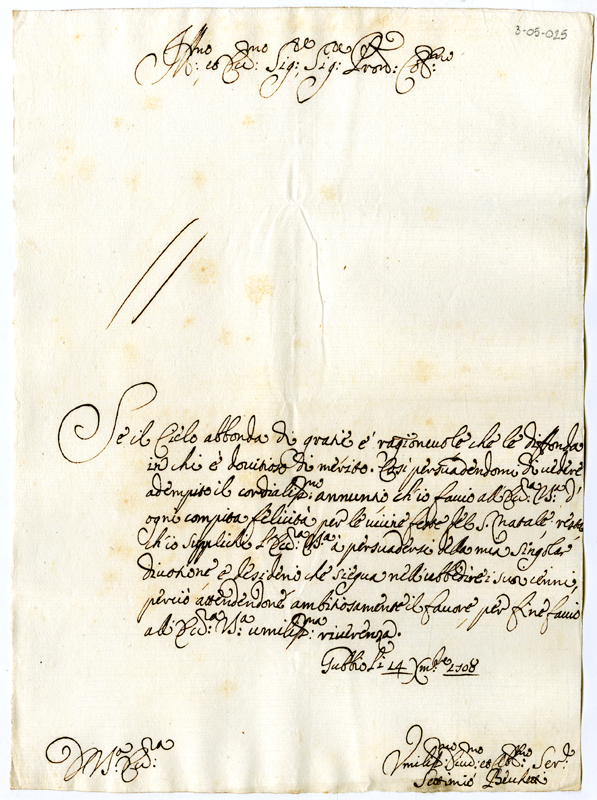 3-05-025
Ill:mo et Ecc:mo Sig:re Sig:re Pron: Col:mo
Se il Cielo abbonda di gratie è ragioneuole che le diffonda
in chi è douitioso di merito. Così persuadendomi di uedere
adempito il cordialiss:mo annuntio ch'io faccio all'Ecc:za V:ra d'
ogni compita felicità per le uicine feste del S. Natale, resta
ch'io supplichi l'Ecc:za V:ra à persuadersi della mia singolar
diuotione e desiderio che siegua nell'ubbedire i suoi cenni,
perciò attendendone ambitiosamente il fauore per fine faccio
all'Ecc:za V:ra umiliss:ma riuerenza.
Gubbio li 14 Xm:bre 1708
D V:ra Ecc:za
Vmiliss:mo et Obb:mo Ser:re
Settimio